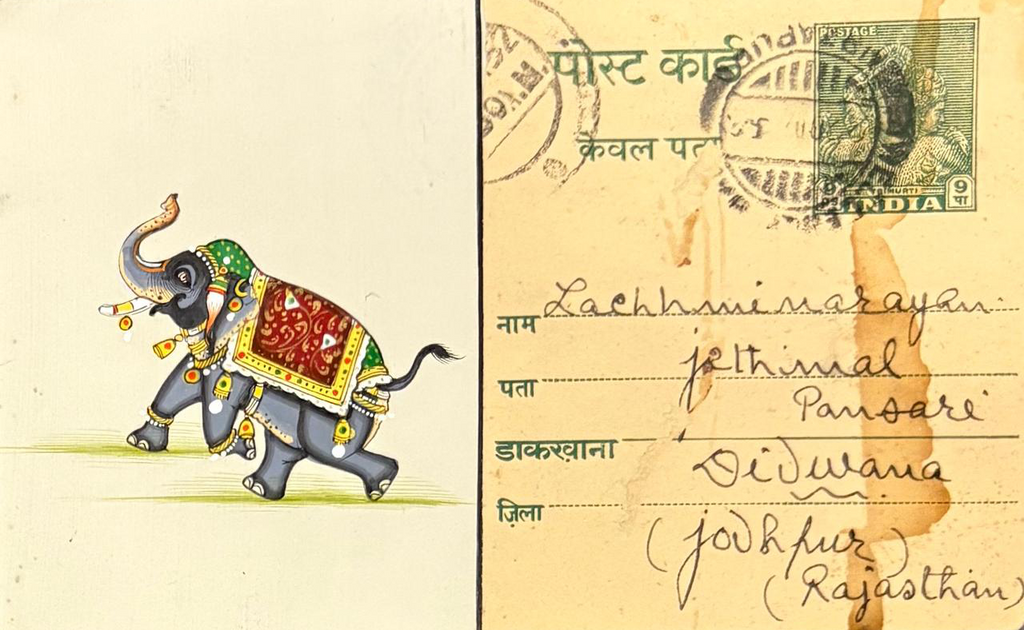 पोस्ट कार्ड
POSTAGE
केवल पता
TRIMURTI
9 पा INDIA 9 पा
नाम Lachhminarayan
पता Jethimal
Pansari
डाकखाना
Didwana
ज़िला
(Jodhpur)
(Rajasthan)